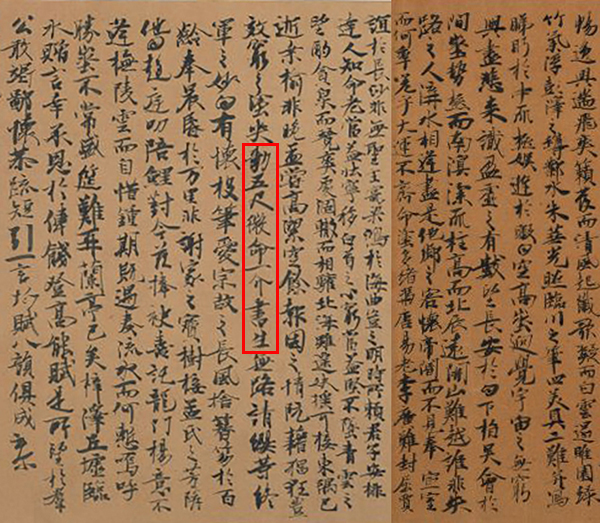 暢逸興遄飛爽籟發而清風起纖歌凝而白雲遏睢園緑
竹氣浮彭澤之樽鄴水朱華光照臨川之筆四美具二難并窮
睇眄於中天極娛遊於暇日天高地迥覺宇宙之無窮
興盡悲來識盈虛之有數望長安於日下指吳會於雲
間地勢極而南溟深天柱高而北辰遠關山難越誰悲失
路之人溝水相逢盡是他鄉之客懷帝閽而不見奉宣室
而何年嗟乎大運不齊命途多緒馮唐易老李廣難封屈賈
誼於長沙非無聖主竄梁鴻於海曲豈乏明時所賴君子安排
達人知命老當益壯寧移白首之心窮當益堅不墜青雲之
望酌貪泉而覺爽處涸轍而相驩北海雖遥扶摇可接東隅已
逝桑榆非晚孟嘗高潔空餘報國之情阮籍猖狂豈
效窮途之哭勃五尺微命一介書生無路請纓等終
軍之妙日有懷投筆愛宗慤之長風捨簪笏於百
齡奉晨昏於万里非謝家之寶樹接孟氏之芳隣
他日趨庭叨陪鯉對今茲捧袂喜託龍門楊意不
逢撫陵雲而自惜鍾期既遇奏流水而何慙嗚呼
勝地不常盛筵難再蘭亭已矣梓澤丘墟臨
水贈言幸承恩於偉餞登高能賦是所望於群
公敢竭鄙懷恭疏短引一言均賦八韻俱成云尔